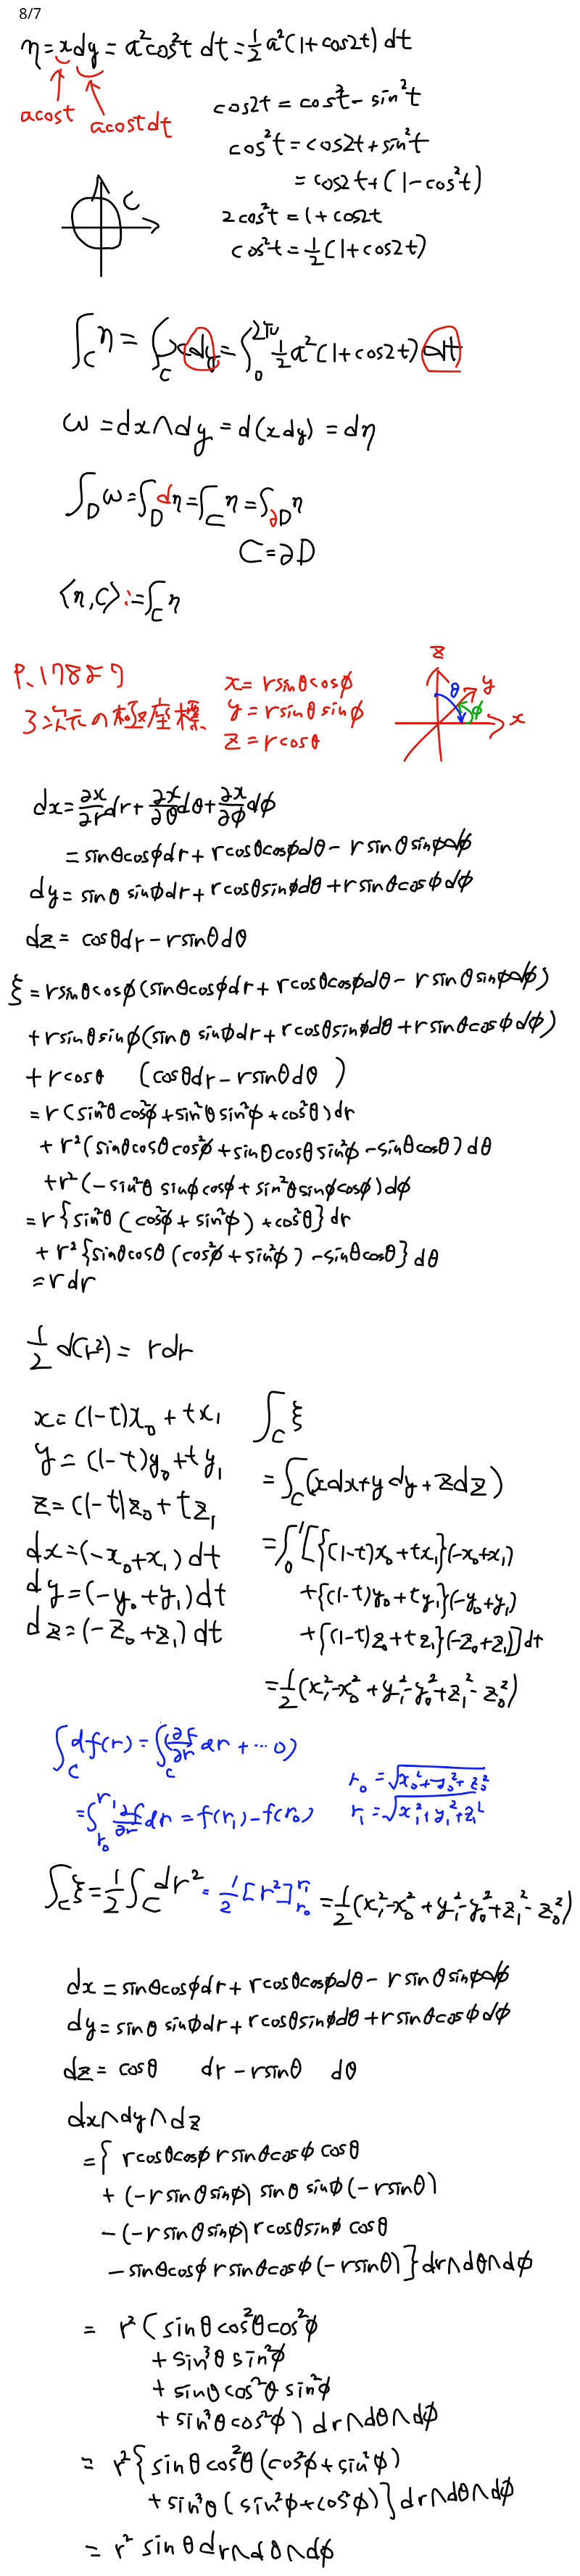 8/7
η = xdy = a²cos²t dt = 1/2 a²(1+cos2t) dt
acost
acostdt
cos2t = cos²t - sin²t
cos²t = cos2t + sin²t
= cos2t + (1-cos²t)
2cos²t = 1 + cos2t
cos²t = 1/2 (1+cos2t)
C
∫_C η = ∫_C xdy = ∫_0^{2π} 1/2 a²(1+cos2t) dt
ω = dx∧dy = d(xdy) = dη
∫_D ω = ∫_D dη = ∫_C η = ∫_{∂D} η
C = ∂D
⟨η,C⟩ := ∫_C η
P.178より
3次元の極座標
x = rsinθcosφ
y = rsinθsinφ
z = rcosθ
z
θ
y
φ
x
dx = ∂x/∂r dr + ∂x/∂θ dθ + ∂x/∂φ dφ
= sinθcosφdr + rcosθcosφdθ - rsinθsinφdφ
dy = sinθsinφdr + rcosθsinφdθ + rsinθcosφdφ
dz = cosθdr - rsinθdθ
ξ = rsinθcosφ(sinθcosφdr + rcosθcosφdθ - rsinθsinφdφ)
+ rsinθsinφ(sinθsinφdr + rcosθsinφdθ + rsinθcosφdφ)
+ rcosθ (cosθdr - rsinθdθ )
= r(sin²θcos²φ + sin²θsin²φ + cos²θ)dr
+ r²(sinθcosθcos²φ + sinθcosθsin²φ - sinθcosθ)dθ
+ r²(-sin²θsinφcosφ + sin²θsinφcosφ)dφ
= r{sin²θ(cos²φ + sin²φ) + cos²θ}dr
+ r²{sinθcosθ(cos²φ + sin²φ) - sinθcosθ}dθ
= rdr
1/2 d(r²) = rdr
x = (1-t)x₀ + tx₁
y = (1-t)y₀ + ty₁
z = (1-t)z₀ + tz₁
dx = (-x₀+x₁)dt
dy = (-y₀+y₁)dt
dz = (-z₀+z₁)dt
∫_C ξ
= ∫_C (xdx + ydy + zdz)
= ∫_0^1 [{(1-t)x₀+tx₁}(-x₀+x₁)
+ {(1-t)y₀+ty₁}(-y₀+y₁)
+ {(1-t)z₀+tz₁}(-z₀+z₁)]dt
= 1/2 (x₁²-x₀²+y₁²-y₀²+z₁²-z₀²)
∫_C df(r) = ∫_C (∂f/∂r dr + ⋯0)
= ∫_{r₀}^{r₁} ∂f/∂r dr = f(r₁) - f(r₀)
r₀ = √(x₀²+y₀²+z₀²)
r₁ = √(x₁²+y₁²+z₁²)
∫_C ξ = 1/2 ∫_C dr² = 1/2 [r²]_{r₀}^{r₁} = 1/2 (x₁²-x₀²+y₁²-y₀²+z₁²-z₀²)
dx = sinθcosφdr + rcosθcosφdθ - rsinθsinφdφ
dy = sinθsinφdr + rcosθsinφdθ + rsinθcosφdφ
dz = cosθ dr - rsinθ dθ
dx∧dy∧dz
= { rcosθcosφ rsinθcosφ cosθ
+ (-rsinθsinφ) sinθsinφ (-rsinθ)
- (-rsinθsinφ) rcosθsinφ cosθ
- sinθcosφ rsinθcosφ (-rsinθ) } dr∧dθ∧dφ
= r² ( sinθcos²θcos²φ
+ sin³θsin²φ
+ sinθcos²θsin²φ
+ sin³θcos²φ ) dr∧dθ∧dφ
= r² { sinθcos²θ(cos²φ+sin²φ)
+ sin³θ(sin²φ+cos²φ) } dr∧dθ∧dφ
= r² sinθ dr∧dθ∧dφ